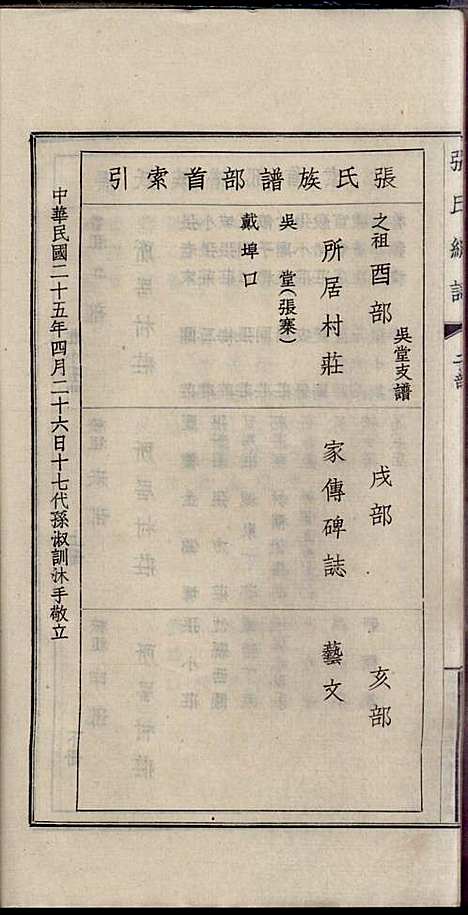 張氏族譜部首索引
之祖酉部 吳堂支譜
所居村莊
吳　堂（張寨）
戴埠口
戌部
家傳碑誌
亥部
藝文
中華民國二十五年四月二十六日十七代孫淑訓沐手敬立
張氏續譜